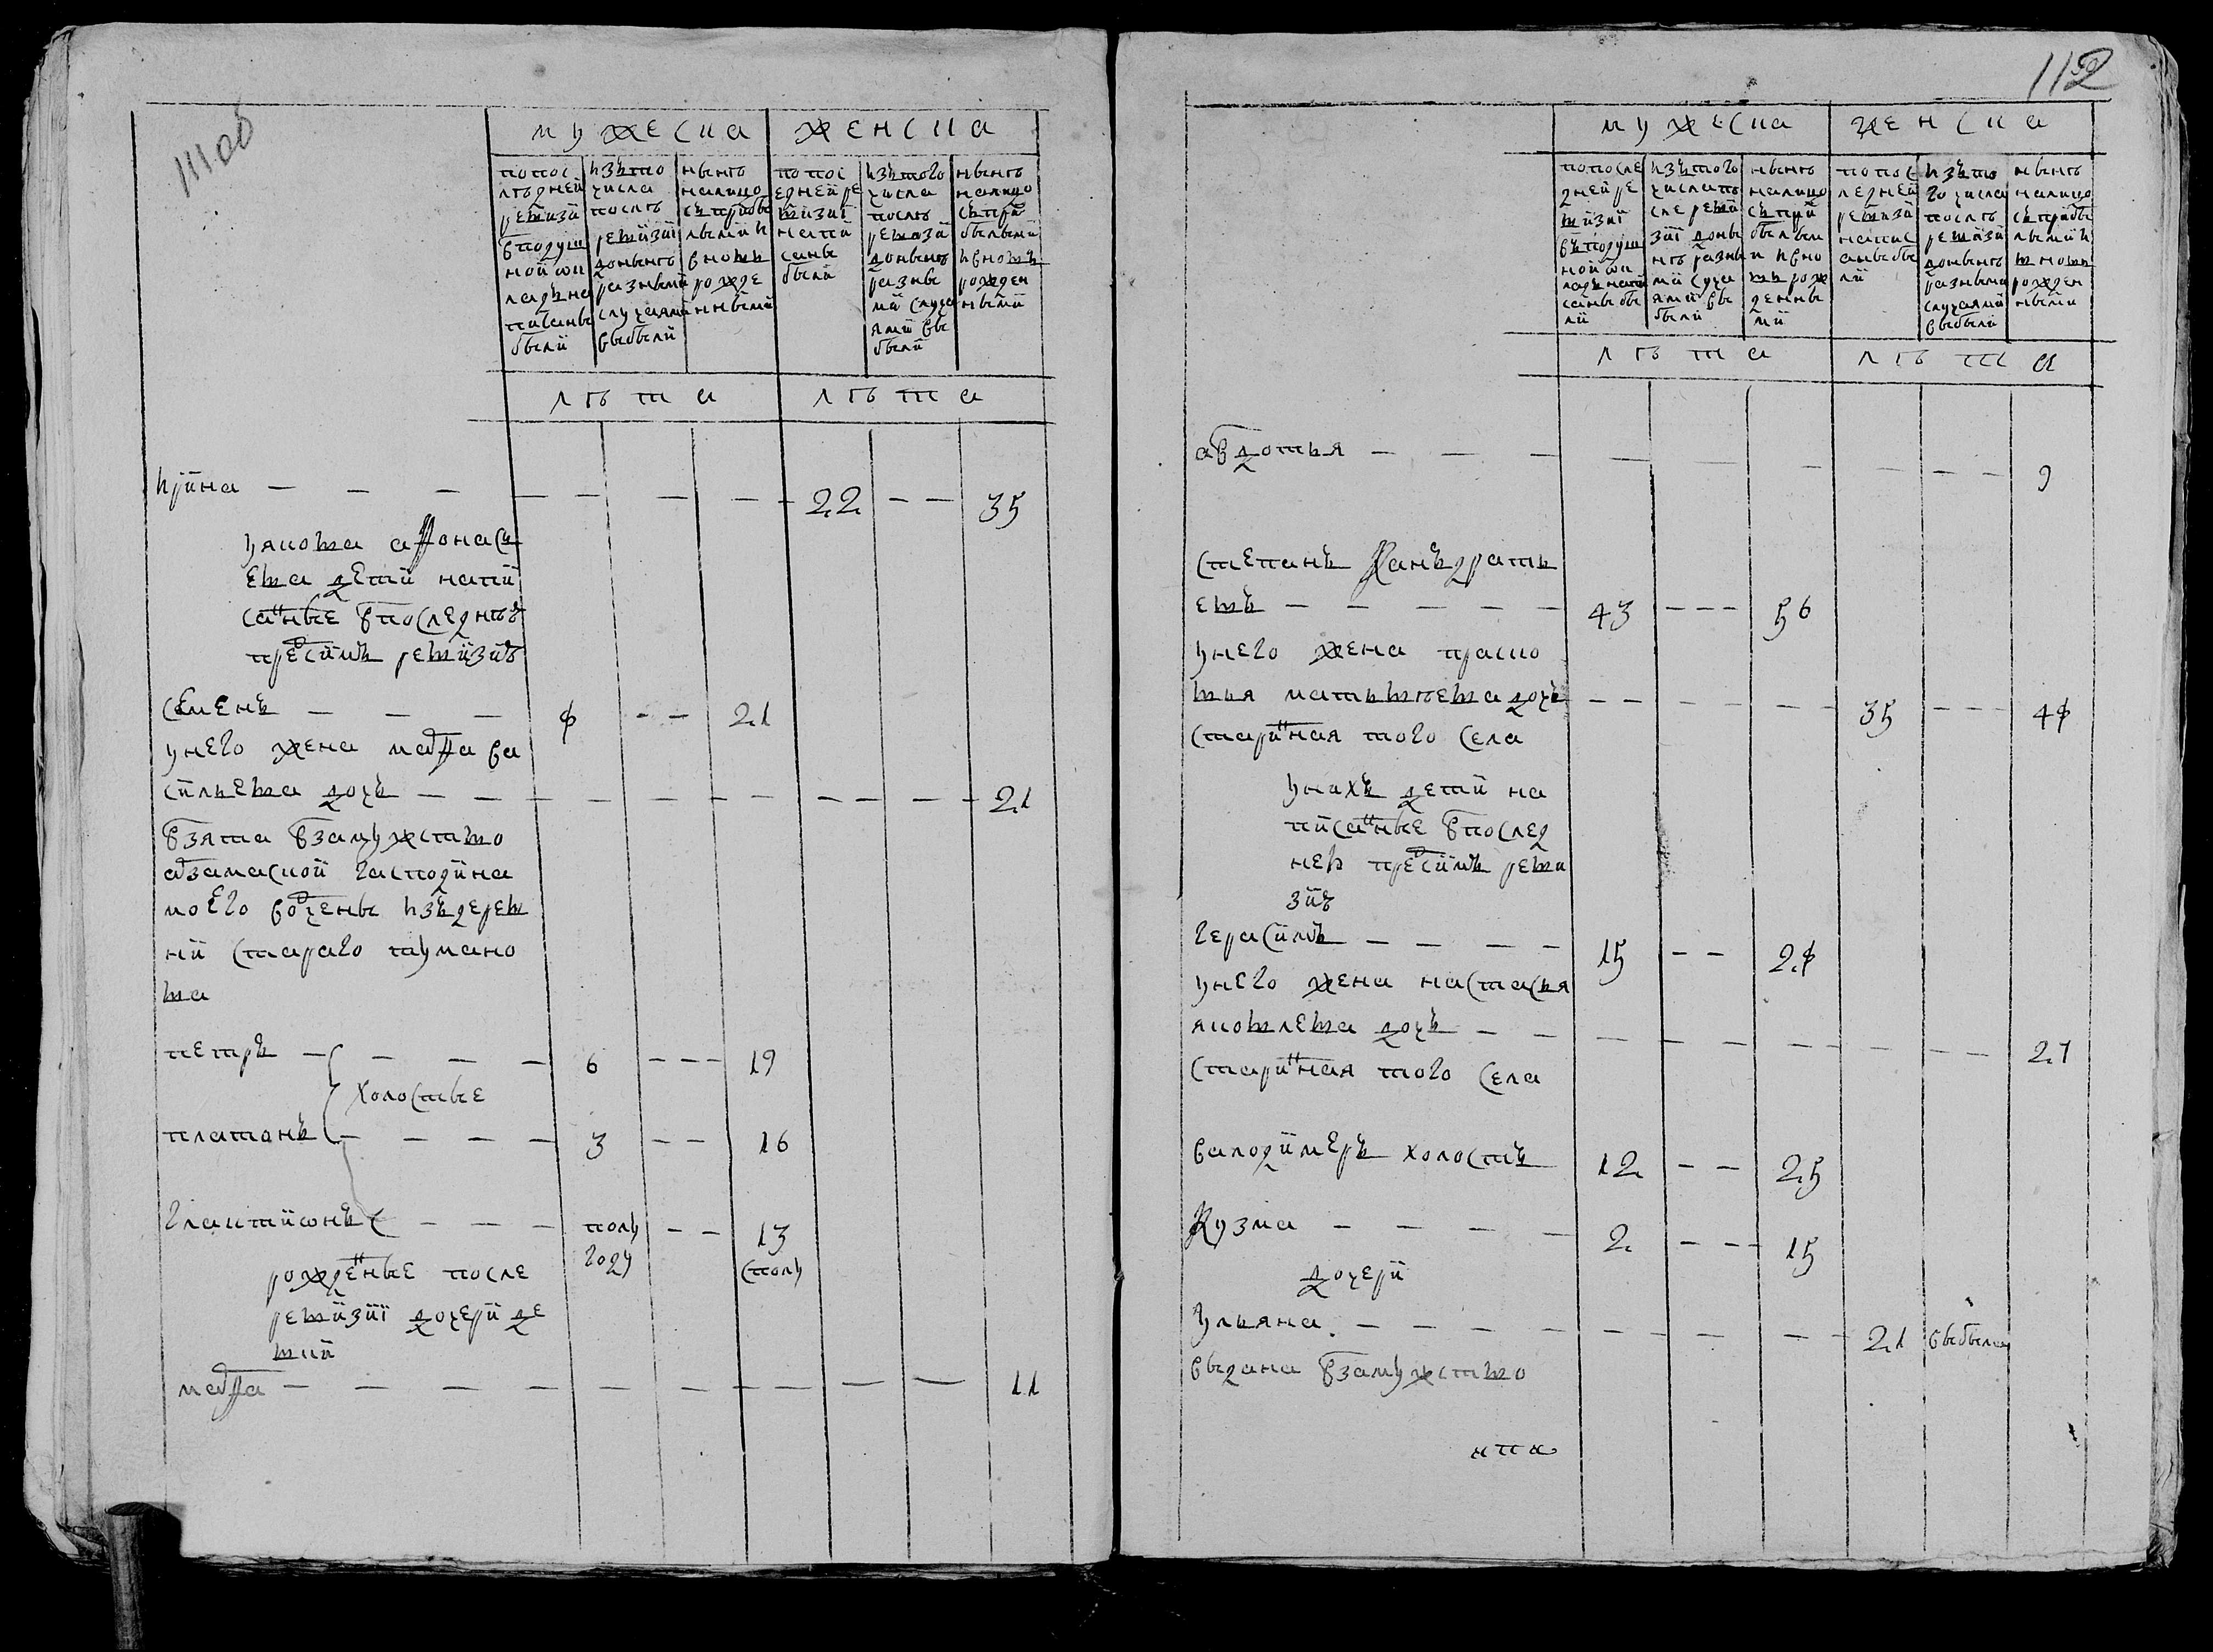 111об
мужеска женска
попос лѣдней ревизи вподушной окладъ написаны были
изъто числа послѣ ревизіи донынѣ разными случаями выбыли
нынѣ налицо съприбылыми и вновь рожденными
попос едней ревизиї написаны были
изътого числа послѣ ревизи донынѣ разными случаями выбыли
нынѣ налицо съприбылыми ивновь рожденными
лѣта лѣта
ирина — — — 22 — 35
уякова афонасьева дети написанные впоследнѣй
пред симъ ревизиѣ
семенъ — — — 8 — — 21
унего жена марфа ва
сильева дочь — — — 21
взята взамужство
арзамаской гасподина
моего вотчены издерев
ни стараго тумано
ва
петръ — — — 6 — — 19
холостые
платонъ — — — 3 — — 16
глактионъ — — — полу году — — 13 споль
рожденные после
ревизиї дочери де
вки
марфа — — — 11
112
мужеска женска
попосле дней ревизиї въподушной окладъ написаны были
изътого числа после ревизиї донынѣ разными случаями выбыли
нынѣ налицо съприбылыми и вновь рожденными
попос ледней ревизи написаны были
изъто го числа послѣ ревизи донынѣ разными случаями выбыли
нынѣ налицо съприбылыми и вновь рожденными
лѣта лѣта
авдотья — — — 9
степанъ Канъдрать
евъ — — — 43 — — — 56
унего жена праско
вья матьвѣева дочь — — — 35 — — — 48
старинная того села
унихъ дети на
писанные впослед
ней пред симъ реви
зиѣ
герасимъ — — — 15 — — 28
унего жена настасья
яковлева дочь — — — 27
старинная того села
валодимеръ холостъ 12 — — 25
Кузма — — — 2 — — — 15
дочери
ульяна — — — 21 выбыла
выдана взамужство